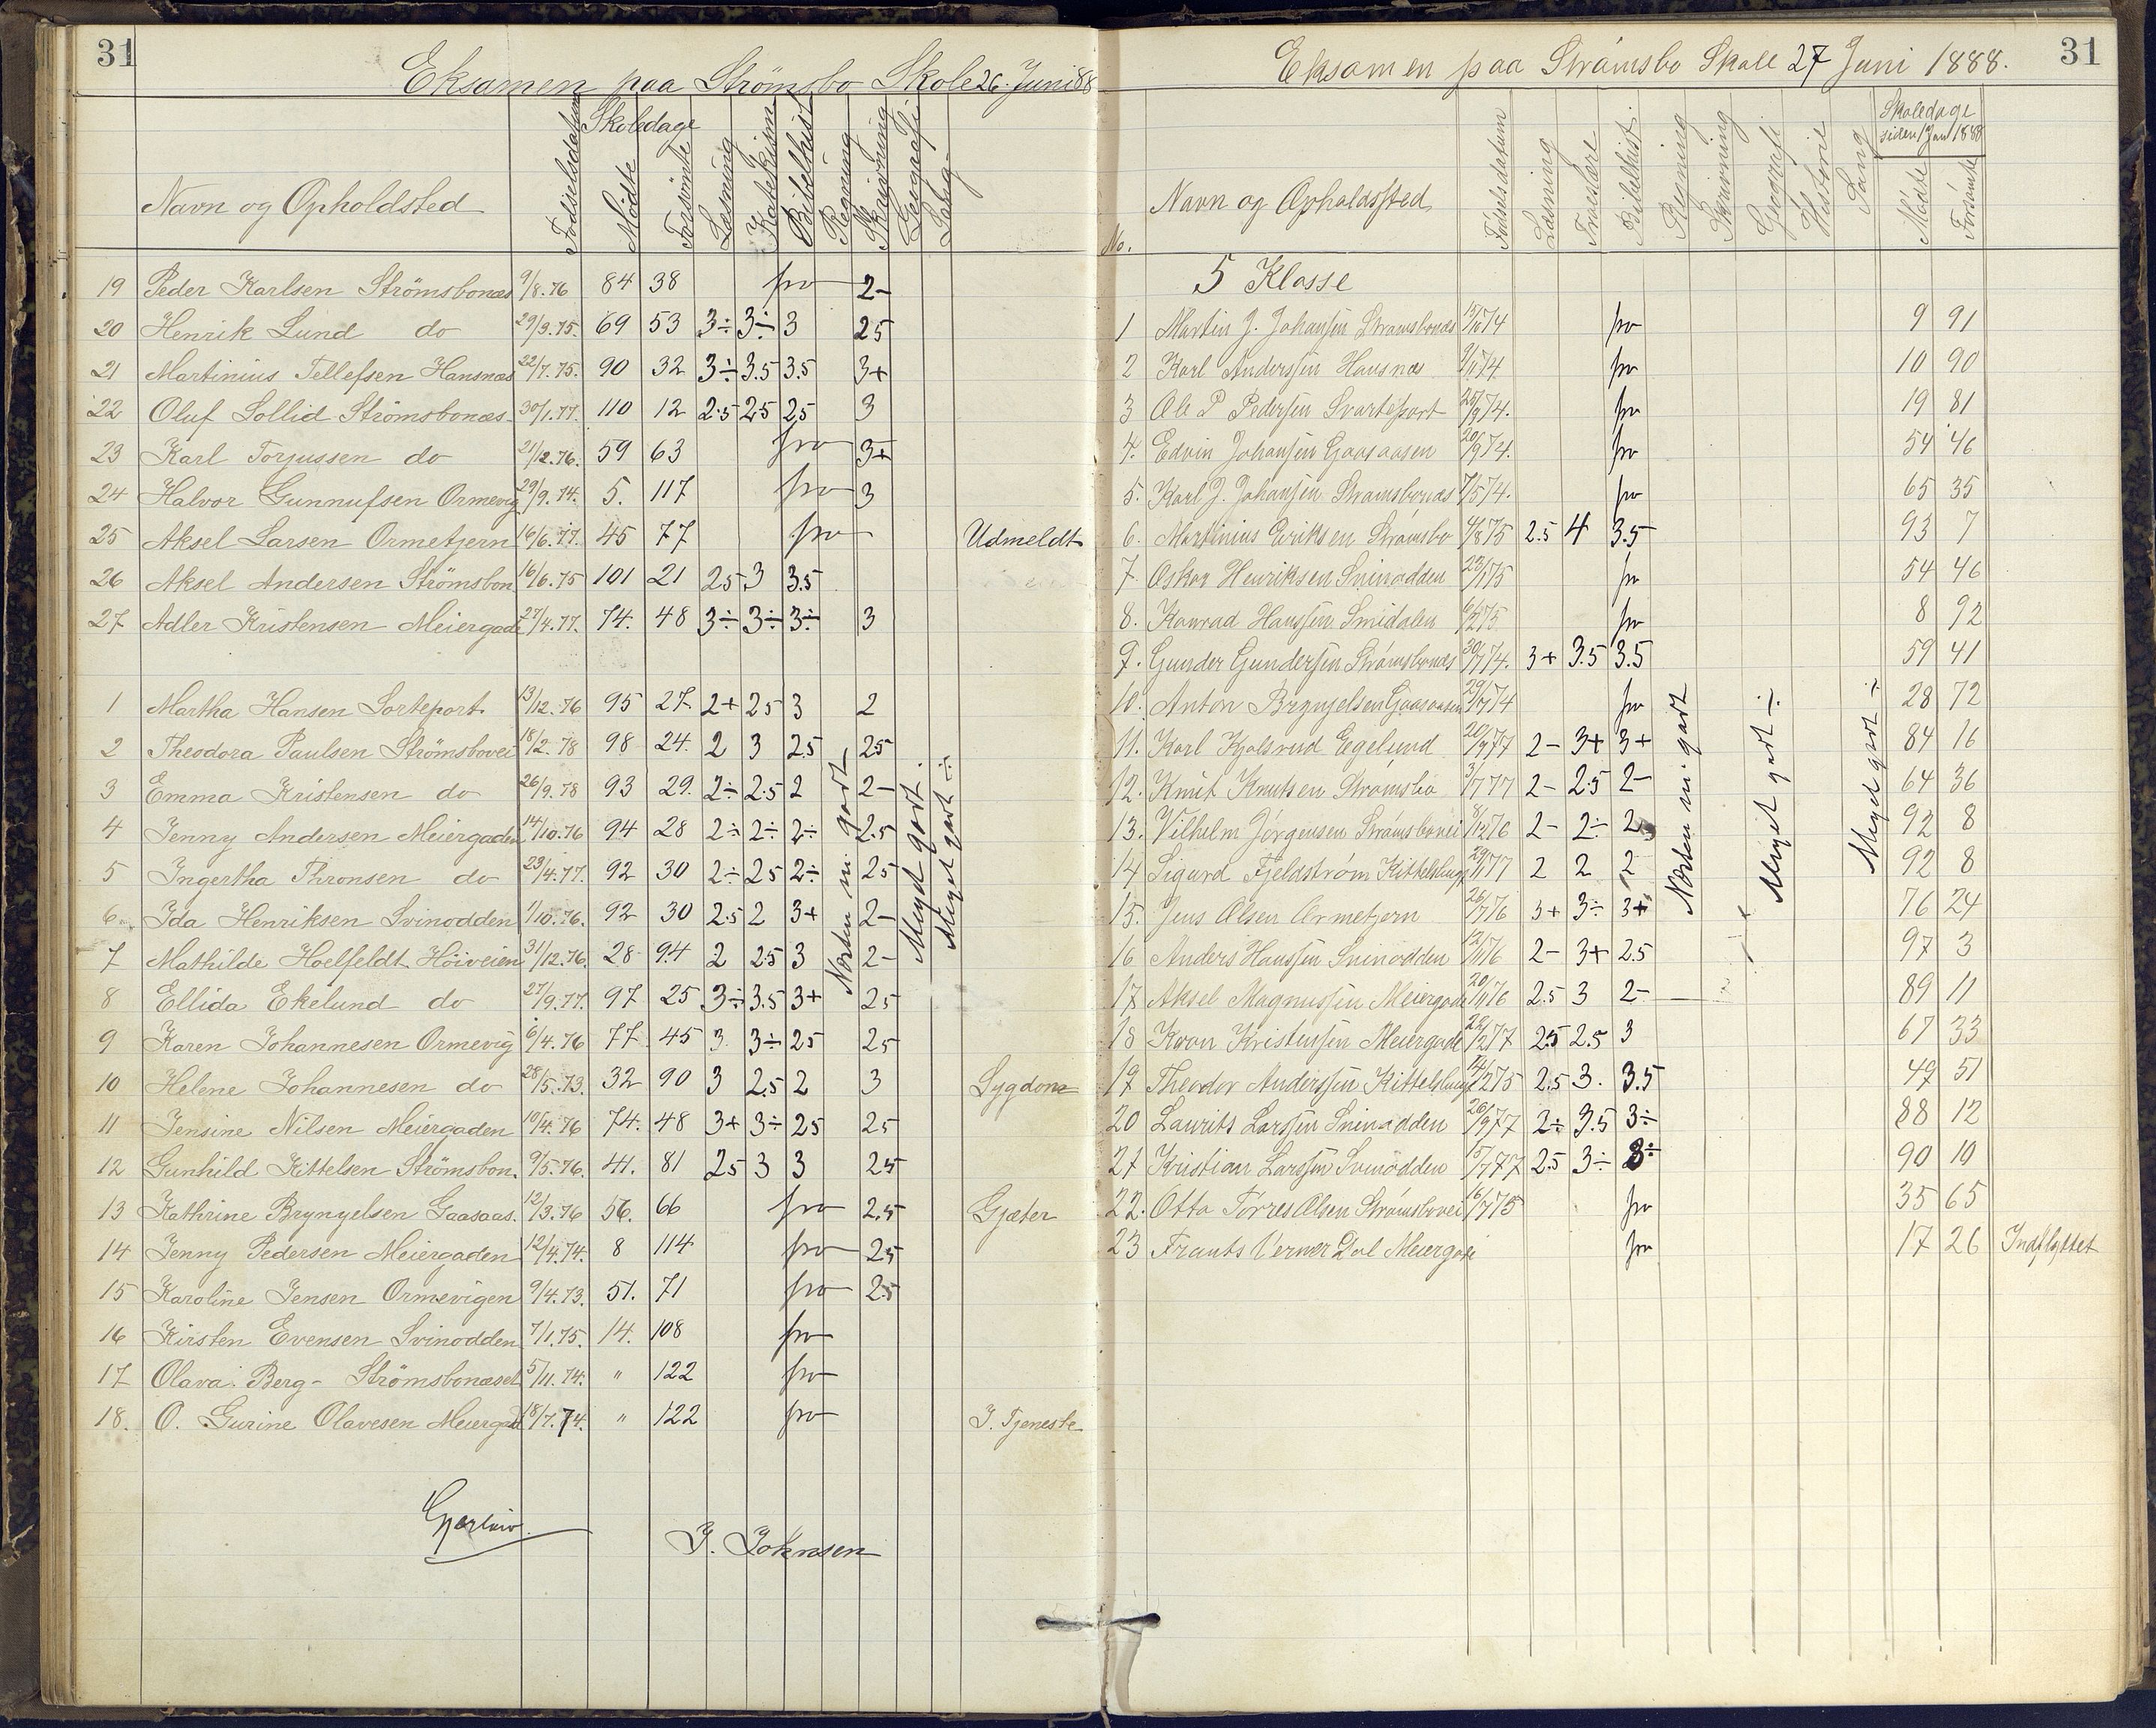 31
Eksamen paa Strömsbo Skole 26. Juni 88
Navn og Opholdsted Födselsdatum Skoledage Mödte Forsömte Læsning Katekism Bibelhist Regning Skrivning Geografi Sang
19 Peder Karlsen Strömsbonæs 9/8.76 84 38 fra 2-
20 Henrik Lund do 29/3.75. 69 53 3÷ 3÷ 3 25
21 Martinius Tellefsen Hansnæs 22/7.75. 90 32 3÷ 3.5 3.5 3+
22 Oluf Sollid Strömsbonæs 30/1.77. 110 12 2.5 25 25 3
23 Karl Torjussen do 21/12.76. 59 63 fra 3+
24 Halvor Gunnufsen Ormevig 29/9.74. 5. 117 fra 3
25 Aksel Larsen Ormetjern 16/6.77. 45 77 fra Udmeldt
26 Aksel Andersen Strömsbon 16/6.75 101 21 25 3 3.5
27 Adler Kristensen Meiergade 27/4.77. 74. 48 3÷ 3÷ 3÷ 3
1 Martha Hansen Sorteport 13/12.76 95 27 2+ 25 3 2
2 Theodora Paulsen Strömsbovei 18/2.78 98 24. 2 3 2.5 25
3 Emma Kristensen do 26/9.78 93 29. 2÷ 2.5 2 2-
4 Jenny Andersen Meiergaden 14/10.76 94 28 2÷ 2÷ 2÷ 2.5
5 Ingertha Thronsen do 23/4.77. 92 30 2÷ 25 2÷ 25
6 Ida Henriksen Svinodden 1/10.76. 92 30 2.5 2 3+ 2-
7 Mathilde Hoelfeldt Höiveien 31/12.76. 28 94 2 25 3 2-
8 Ellida Ekelund do 27/9.77. 97 25 3÷ 3.5 3+ 25
9 Karen Johannesen Ormevig 6/4.76 77. 45 3 3÷ 25 25
10 Helene Johannesen do 28/5.73. 32 90 3 2.5 2 3 Sygdom
11 Jensine Nilsen Meiergaden 10/4.76 74. 48 3+ 3÷ 25 25
12 Gunhild Kittelsen Strömsbon. 9/5.76. 41. 81 25 3 3 25
13 Kathrine Brynyelsen Gaasaas. 12/3.76 56. 66 fra 2.5 Gjæter
14 Jenny Pedersen Meiergaden 12/4.74. 8 114 fra 25
15 Karoline Jensen Ormevigen 9/4.73. 51. 71 fra 25
16 Kirsten Evensen Svinodden 7/1.75. 14. 108 fra
17 Olava Berg - Strömsbonæset 5/11.74. " 122 fra
18. O. Gurine Olavesen Meiergad 18/7.74. " 122 fra I. Tjeneste
Næsten m. godt
Meget godt.
Meget godt ÷
J. Johnsen
31
Eksamen paa Strømsbo Skole 27 Juni 1888.
No. Navn og Opholdssted Fødselsdatum Læsning Troeslære Bibelhist. Regning Skrivning Geografi Historie Sang Skoledage siden 1 Jan 1888 Mødte Forsømte
5 Klasse
1 Martin J. Johansen Strømsbonæs 9 91 fra
2 Karl Anderssen Hansnæs fra 10 90
3 Ole P Pedersen Svarteport fra 19 81
4. Edvin Johansen Gaasaasen fra 54 46
5. Karl J. Johansen Strømsbonæs 7/5 74. fra 65 35
6. Martinius Eriksen Strømsbo 4/8 75 2.5 4 3.5 93 7
7. Oskar Henriksen Svinodden 23/1 75 fra 54 46
8. Konrad Hanssen Smidalen fra 8 92
9. Gunder Gundersen Strømsbonæs 30/7 74. 3+ 3.5 3.5 59 41
10. Anton Brynjelsen Gaasaasen fra 28 72
11. Karl Kjølsrud Egelund 20/9 77 2- 3+ 3+ 84 16
12. Knut Knutsen Strømsbo 3/7 77 2- 2.5 2- 64 36
13. Vilhelm Jørgensen Strømsbovei 8/12 76 2- 2÷ 2 92 8
14 Sigurd Fjeldstrøm Kittelsbugt 29/1 77 2 2 2 92 8
15. Jens Olsen Ormetjern 26/7 76 3+ 3÷ 3+ 76 24
16 Anders Hanssen Svinodden 12/1 76 2- 3+ 2.5 97 3
17 Aksel Magnussen Meiergade 20/11 76 2.5 3 2- 89 11
18 Kwan Kristensen Meiergade 22/2 77 25 2.5 3 67 33
19 Theodor Anderssen Kittelsbugt 14/2 75 2.5 3. 3.5 49 51
20 Laurits Larssen Svinodden 26/9 77 2÷ 3.5 3÷ 88 12
21 Kristian Larssen Svinodden 15/7 77 25 3÷ 3÷ 90 10
22. Otto Tørres Olsen Strømsbovei 16/7 75 fra 35 65
23 Frants Verner Dal Meiergade fra 17 26 Indflyttet
Næsten m. godt
Meget godt ÷
Meget godt ÷